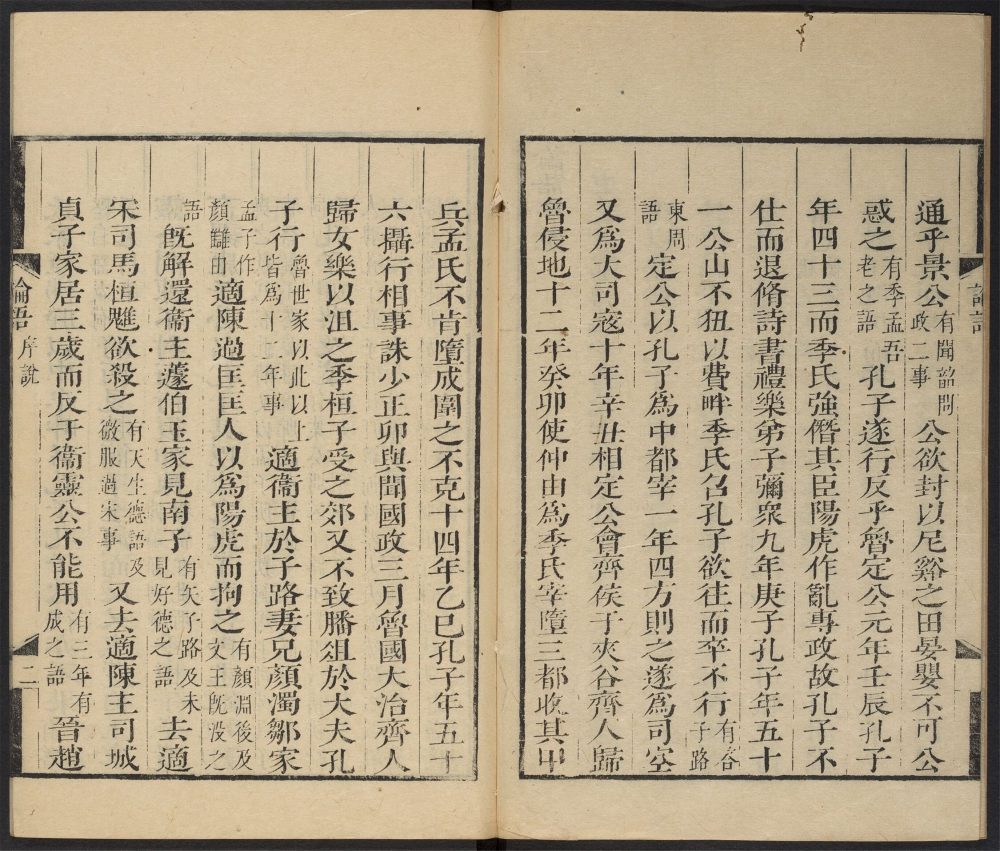 通乎景公有聞韶問政二事公欲封以尼谿之田晏嬰不可公
惑之有季孟吾老之語孔子遂行反乎魯定公元年壬辰孔子
年四十三而季氏強僭其臣陽虎作亂專政故孔子不
仕而退脩詩書禮樂弟子彌衆九年庚子孔子年五十
一公山不狃以費畔季氏召孔子欲往而卒不行有答子路
東周語定公以孔子爲中都宰一年四方則之遂爲司空
又爲大司寇十年辛丑相定公會齊侯于夾谷齊人歸
魯侵地十二年癸卯使仲由爲季氏宰墮三都收其甲
兵孟氏不肯墮成圍之不克十四年乙巳孔子年五十
六攝行相事誅少正卯與聞國政三月魯國大治齊人
歸女樂以沮之季桓子受之郊又不致膰俎於大夫孔
子行魯世家以此以上皆爲十二年事適衞主於子路妻兄顏濁鄒家
孟子作顏讎由適陳過匡匡人以爲陽虎而拘之有顏淵後及文王旣没之
語旣解還衞主蘧伯玉家見南子有矢子路及未見好德之語去適
宋司馬桓魋欲殺之有天生德語及微服過宋事又去適陳主司城
貞子家居三歲而反于衞靈公不能用有三年有成之語晉趙
論語序說
二